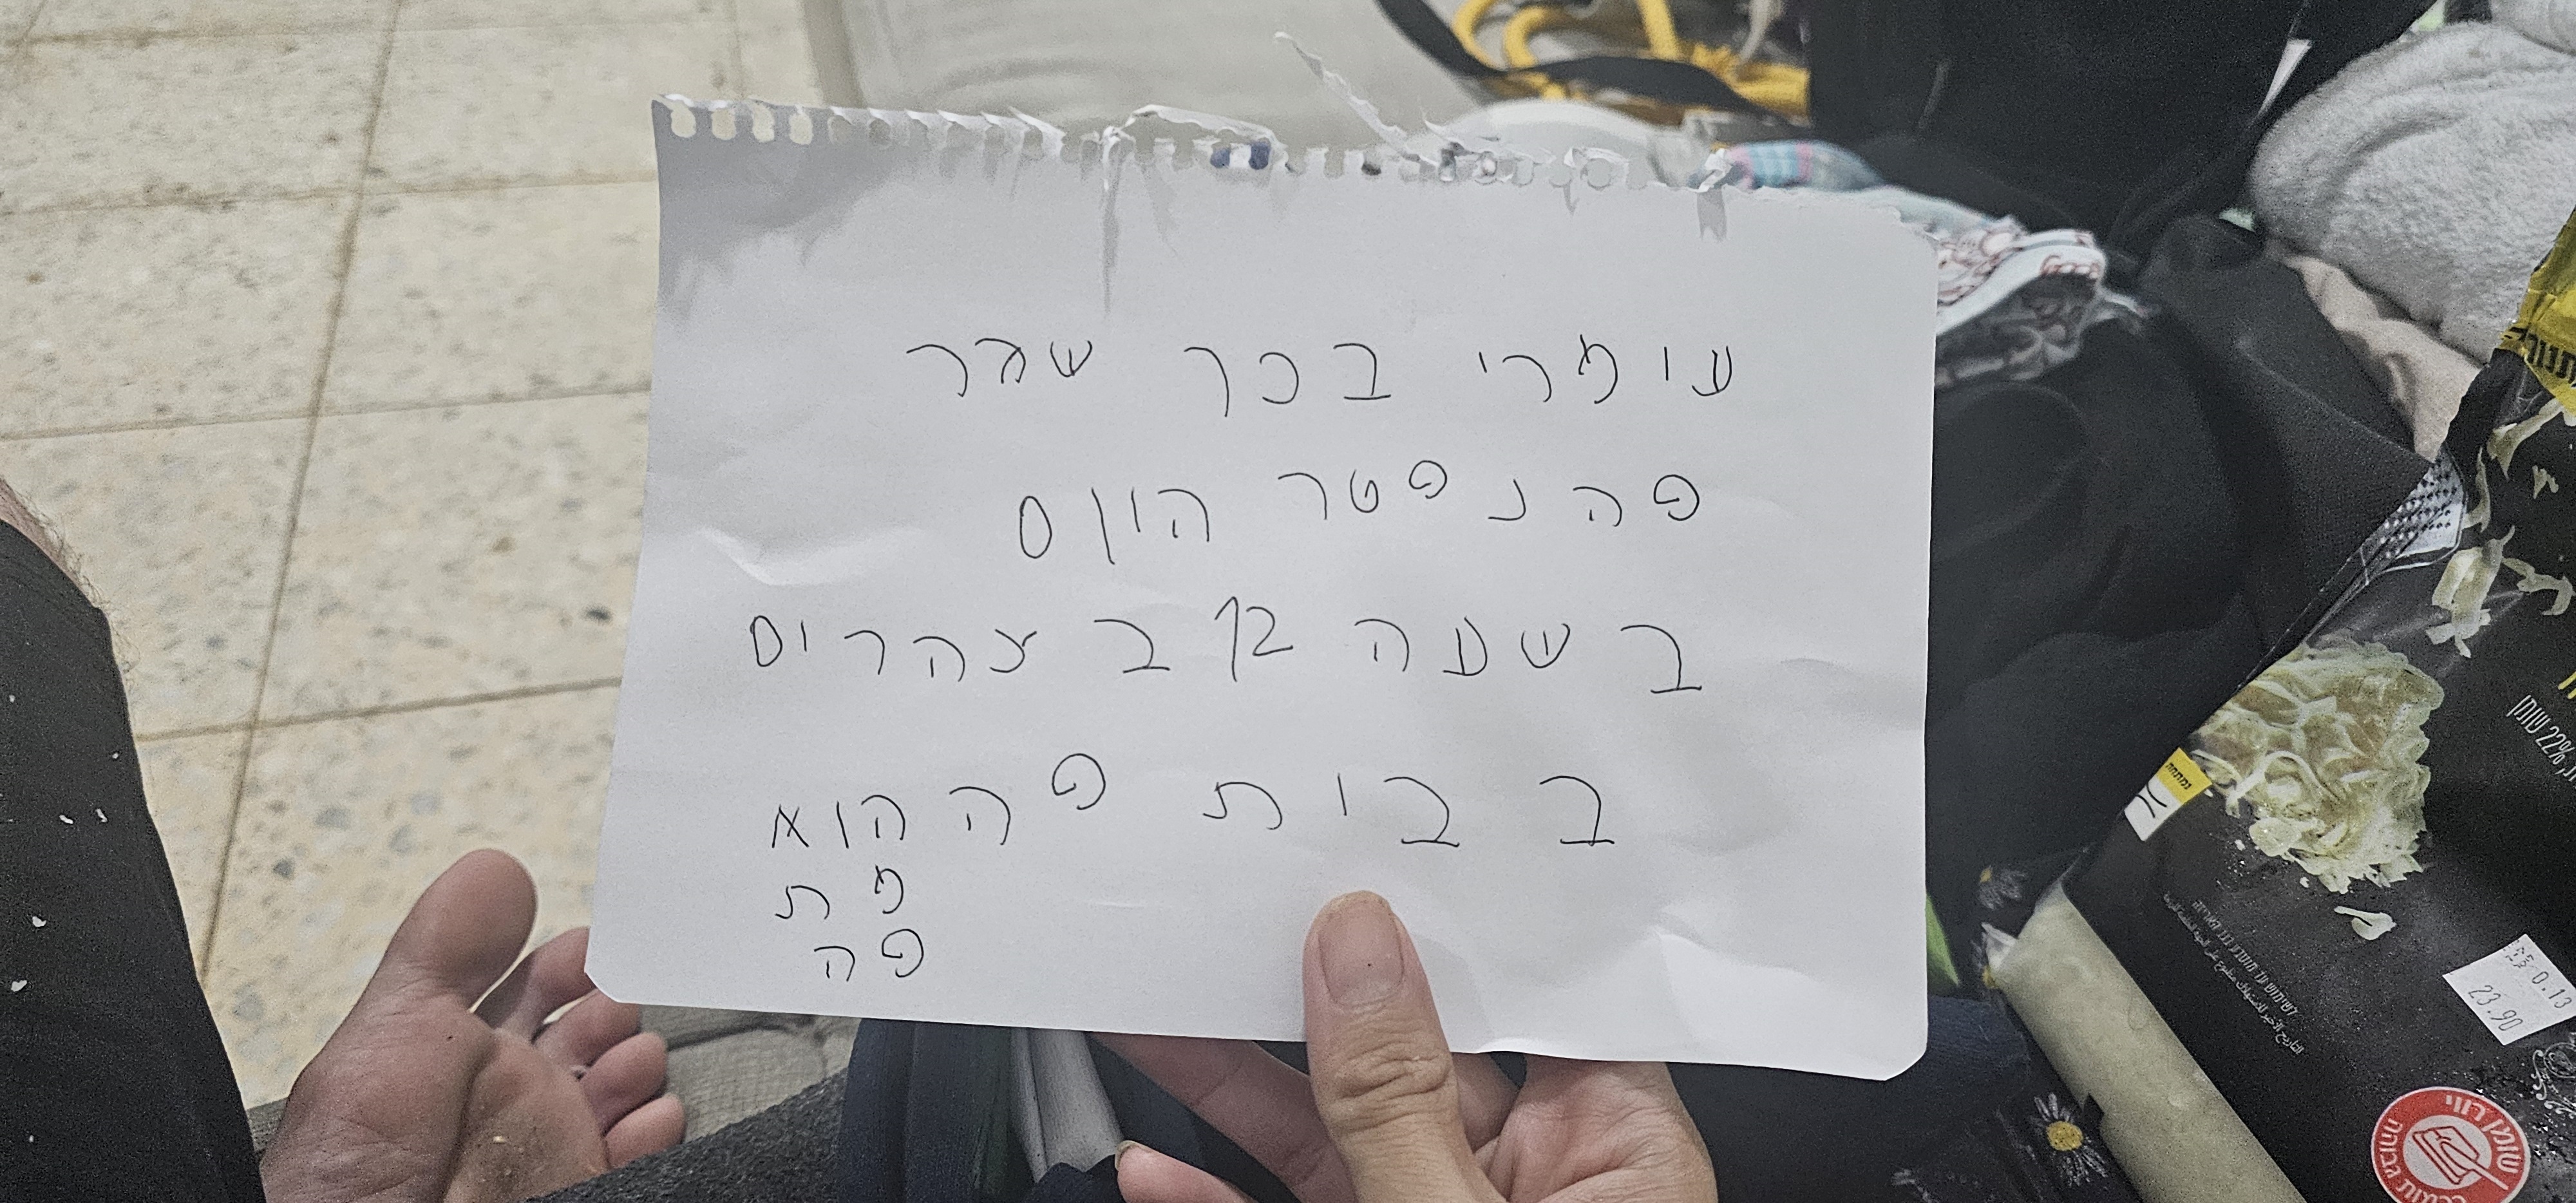 עומרי בכר שהר
פה נפטר הוןם
בשעה 12 ב צהרים
ב בות פה הוא
מת
פה
23.90